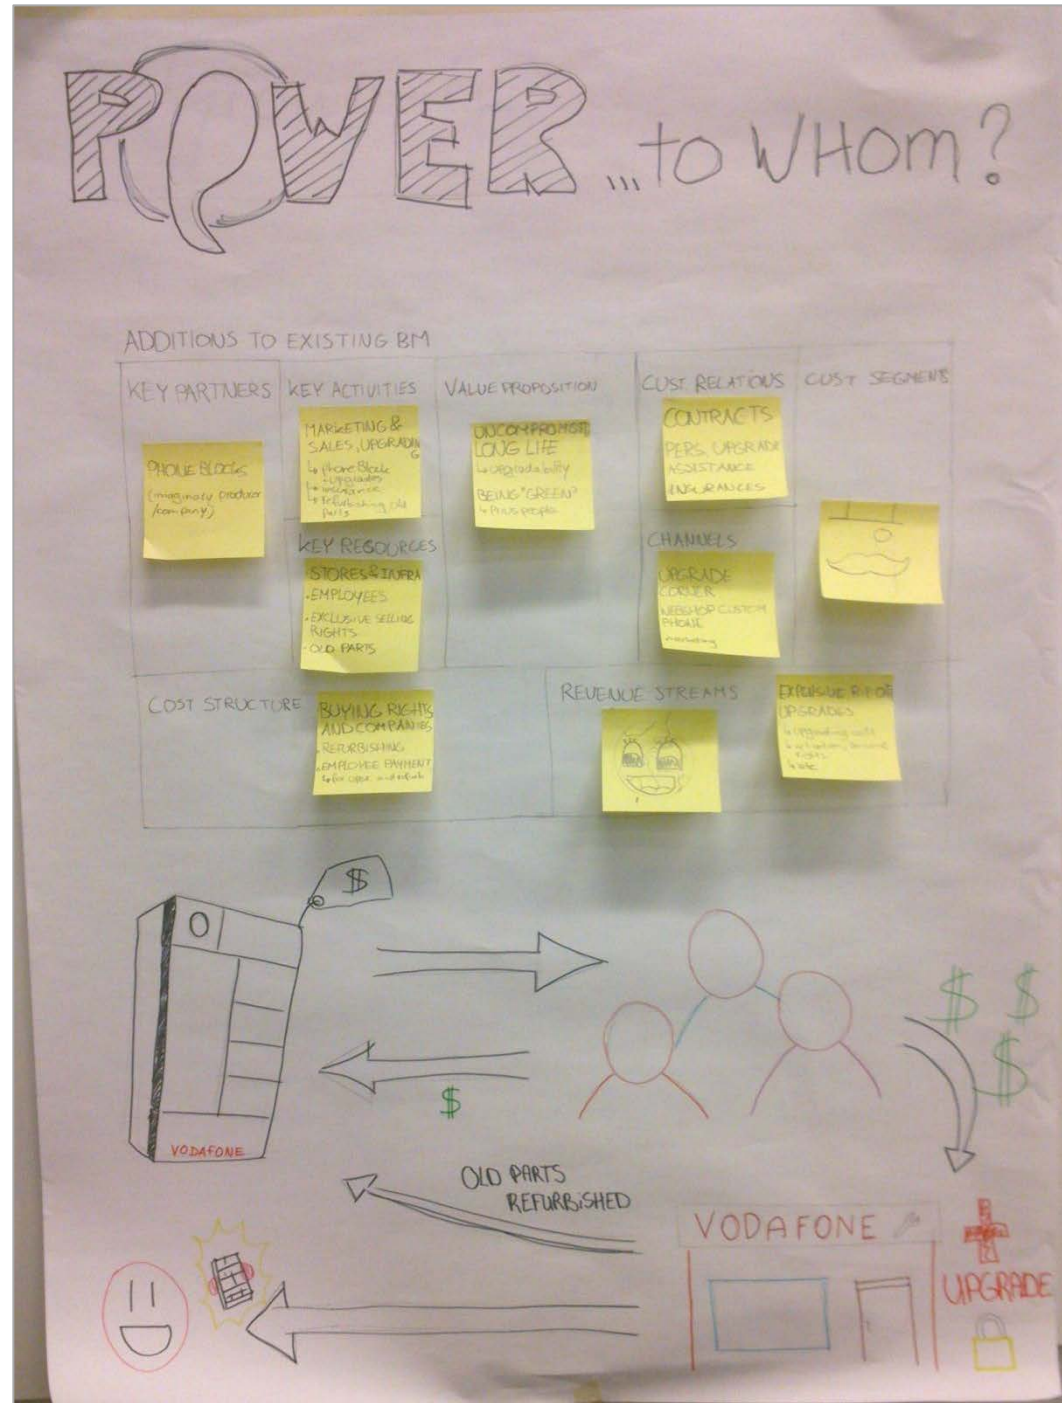 POWER ...to WHOM?
ADDITIONS TO EXISTING BM
KEY PARTNERS
PHONEBLOCKS
(imaginary producer
/company)
KEY ACTIVITIES
MARKETING &
SALES, UPGRADING
↳ phoneBlock
+upgrades
↳ insurance
↳ refurbishing old
parts
KEY RESOURCES
STORES & INFRA
• EMPLOYEES
• EXCLUSIVE SELLING
RIGHTS
• OLD PARTS
VALUE PROPOSITION
LONG LIFE
↳ upgradability
BEING "GREEN"
CUST RELATIONS
CONTRACTS
PERS. UPGRADE
ASSISTANCE
INSURANCES
CHANNELS
UPGRADE
CORNER
WEBSHOP CUSTOM
PHONE
CUST SEGMENT
COST STRUCTURE
BUYING RIGHTS
AND COMPANIES
• REFURBISHING
• EMPLOYEE PAYMENT
REVENUE STREAMS
UPGRADES
$
VODAFONE
$
$ $
$
OLD PARTS
REFURBISHED
VODAFONE
UPGRADE